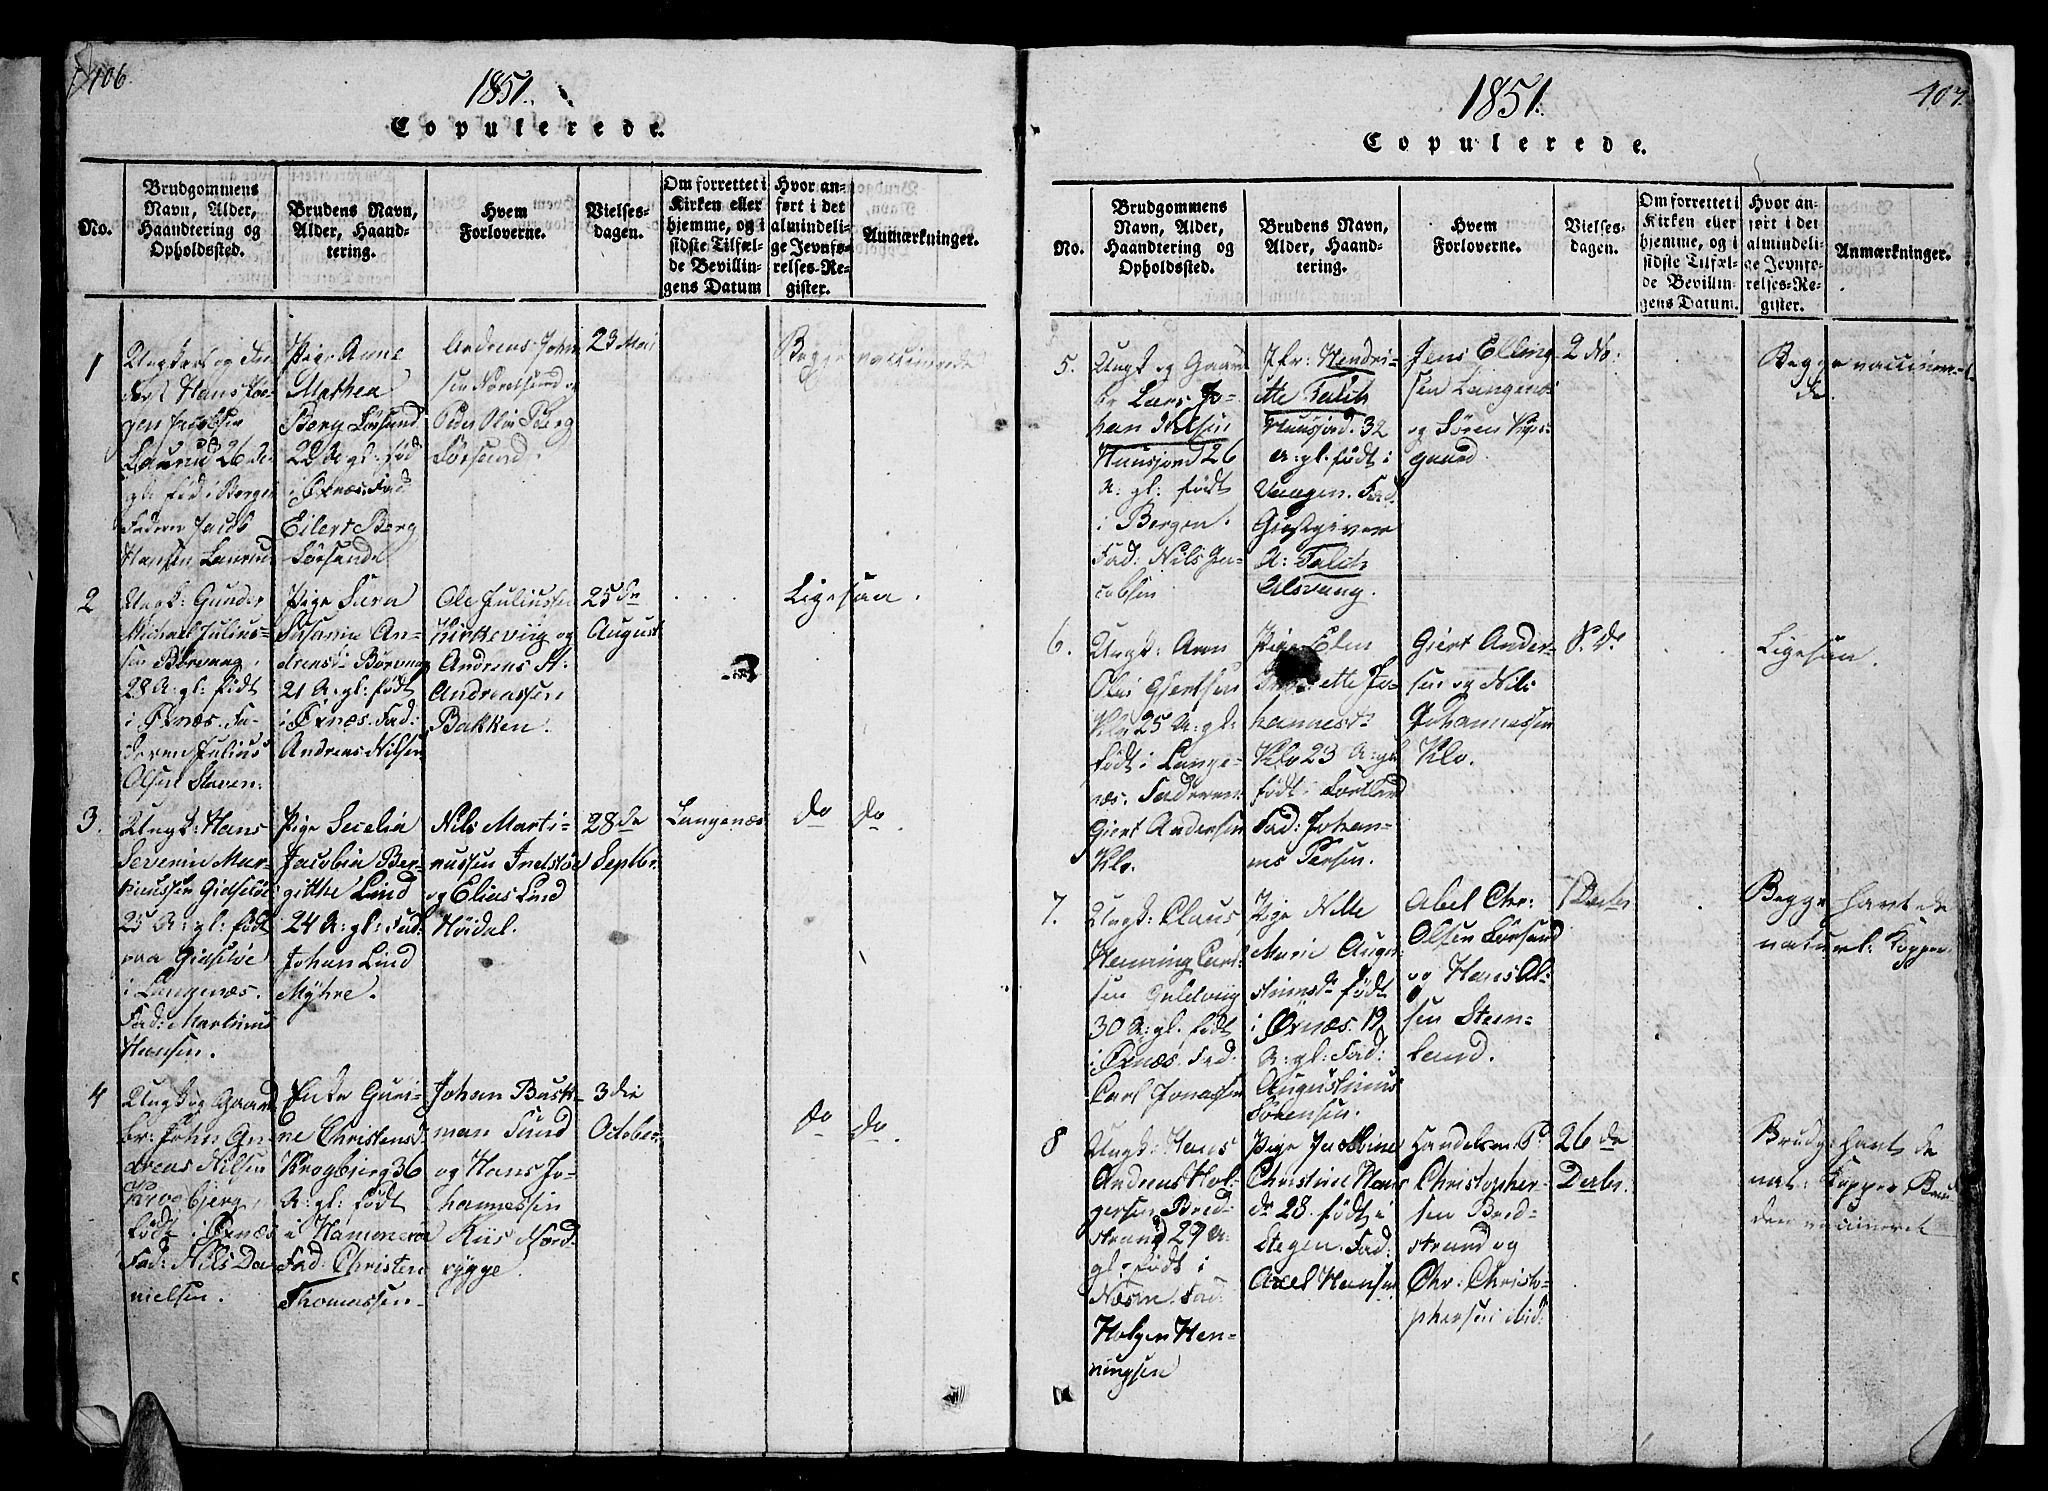 406.
1851.
Copulerede.
No.
Brudgommens
Navn, Alder,
Haandtering og
Opholdssted.
Brudens Navn,
Alder, Haand-
tering.
Hvem
Forloverne.
Vielses-
dagen.
Om forrettet i
Kirken eller
hjemme, og i
sidste Tilfæl-
de Bevillin-
gens Datum
Hvor an-
ført i det
almindeli-
ge Jevnfø-
relses-Re-
gister.
Anmærkninger.
1
Ungkarl og
Hans Jør-
gen Jacobsen
26 A:
gl: fød i Bergen
Faderen Jacob
Hansen
Pige Anne
Mathea
Berg Lørsund
22 A: gl: fød
i Øxnæs. Fad:
Eilert Berg
Lørsund
Andreas John
sen
Peder Berg
Lørsund.
23 Mai
Begge vaccinerede
2
Ungk: Gunder
Michael Julius-
sen Børvaag,
28 A: gl: født
i Øxnæs. Fa-
deren Julius
Olsen Staven:
Pige Sara
Susanne An-
dreasd: Børvaag
21 A: gl: født
i Øxnæs. Fad:
Andreas Nilsen
Ole Juliussen
og
Andreas
Andreassen
Bakken.
25 de
August
Ligesaa.
3.
Ungk: Hans
Severin Mar-
tinussen Gidsløe
25 A: gl: født
paa Gidsløe
i Langenæs.
Fad: Martinus
Hansen.
Pige Secelia
Jacobin Ber-
gitthe Lind
24 A: gl: Fad:
Johan Lind
Myhre.
Nils Marti-
nussen
og Elias Lind
Høidal.
28 de
Septbr.
Langenæs
do do.
4
Ungk og Gaard
br: John An-
dreas Nilsen
Krogbjerg,
født i Øxnæs
Fad: Nils Da-
nielsen.
Enke Guri-
ne Christensd
Krogbjerg 36
A: gl: født
i Hammerøe
Fad: Christen
Thomassen
Johan Buk-
man Sund
og Hans Jo-
hannessen
Riis Nord
rygge.
3 die
October
do do.
407.
1851.
Copulerede.
No.
Brudgommens
Navn, Alder,
Haandtering og
Opholdssted.
Brudens Navn,
Alder, Haand-
tering.
Hvem
Forloverne.
Vielses-
dagen.
Om forrettet i
Kirken eller
hjemme, og i
sidste Tilfæl-
de Bevillin-
gens Datum.
Hvor an-
ført i det
almindeli-
ge Jevnfø-
relses-Re-
gister.
Anmærkninger.
5.
Ungk og Gaard
br Lars Jo-
han Nilsen
Hausjord 26
A: gl: født
i Bergen.
Fad: Nils Ja-
cobsen
Jfr: Hendri-
ette Falch
Hausjord. 32
A: gl: født i
Vaagen. Fad:
Giestgiver
A: Falch
Alsvaag.
Jens Elling-
sen Langenæs
og Søren
gaard
2 No:
Begge vaccinere-
de.
6.
Ungk: Aron
Olai Gjertsen
Klo 25 A: gl:
født i Lange-
næs. Faderen
Giert Andersen
Klo.
Pige Elen
Johannesd:
Klo 23 A: gl
født i Sortland
Fad: Johan-
nes Persen.
Giert Ander-
sen og Nils
Johannessen
Klo.
S. D.
Ligesaa.
7.
Ungk: Claus
Henning Carl-
sen
30 A: gl: født
i Øxnæs. Fad:
Carl Jonassen
Pige Nille
Marie Augu-
stinusd: født
i Øxnæs. 19
A: gl: Fad:
Augustinus
Sørensen.
Abel Chr:
Olsen Lørsund
og Hans Ol-
sen Steen-
land.
7 Decbr
Begge havt de
naturl: Kopper
8
Ungk: Hans
Andreas Hol-
gersen Bred-
strand 29 A:
gl: født i
Næsne. Fad:
Holger Hen-
ningsen
Pige Jacobine
Christine Hans
d: 28. født i
Stegen. Fad:
Axel Hansen
Handelsm: P:
Christopher-
sen Bred-
strand og
Chr: Christo-
phersen ibid:
26 de
Decbr.
Brudg: havt de
nat: Kopper, Bru-
den vaccineret